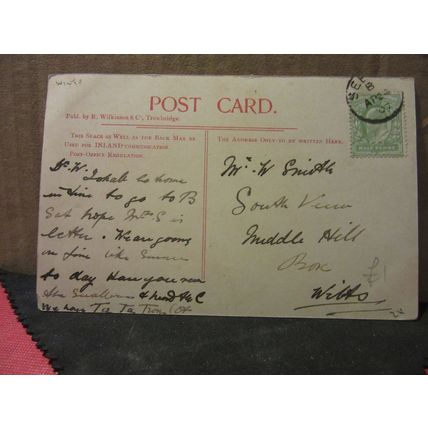 Wilts
POST CARD.
Publ. by R. Wilkinson & Co., Trowbridge.
THIS SPACE AS WELL AS THE BACK MAY BE
USED FOR INLAND COMMUNICATION.
POST-OFFICE REGULATION.
THE ADDRESS ONLY TO BE WRITTEN HERE.
HALF PENNY
Dr. W. I shall be home
in time to go to B
Sat hope Mrs S is
better. We are going
on fine like Summer
to day Have you seen
the Swallows & heard the C
We have
Mr. W Smith
South View
Middle Hill
Box
Wilts
£1